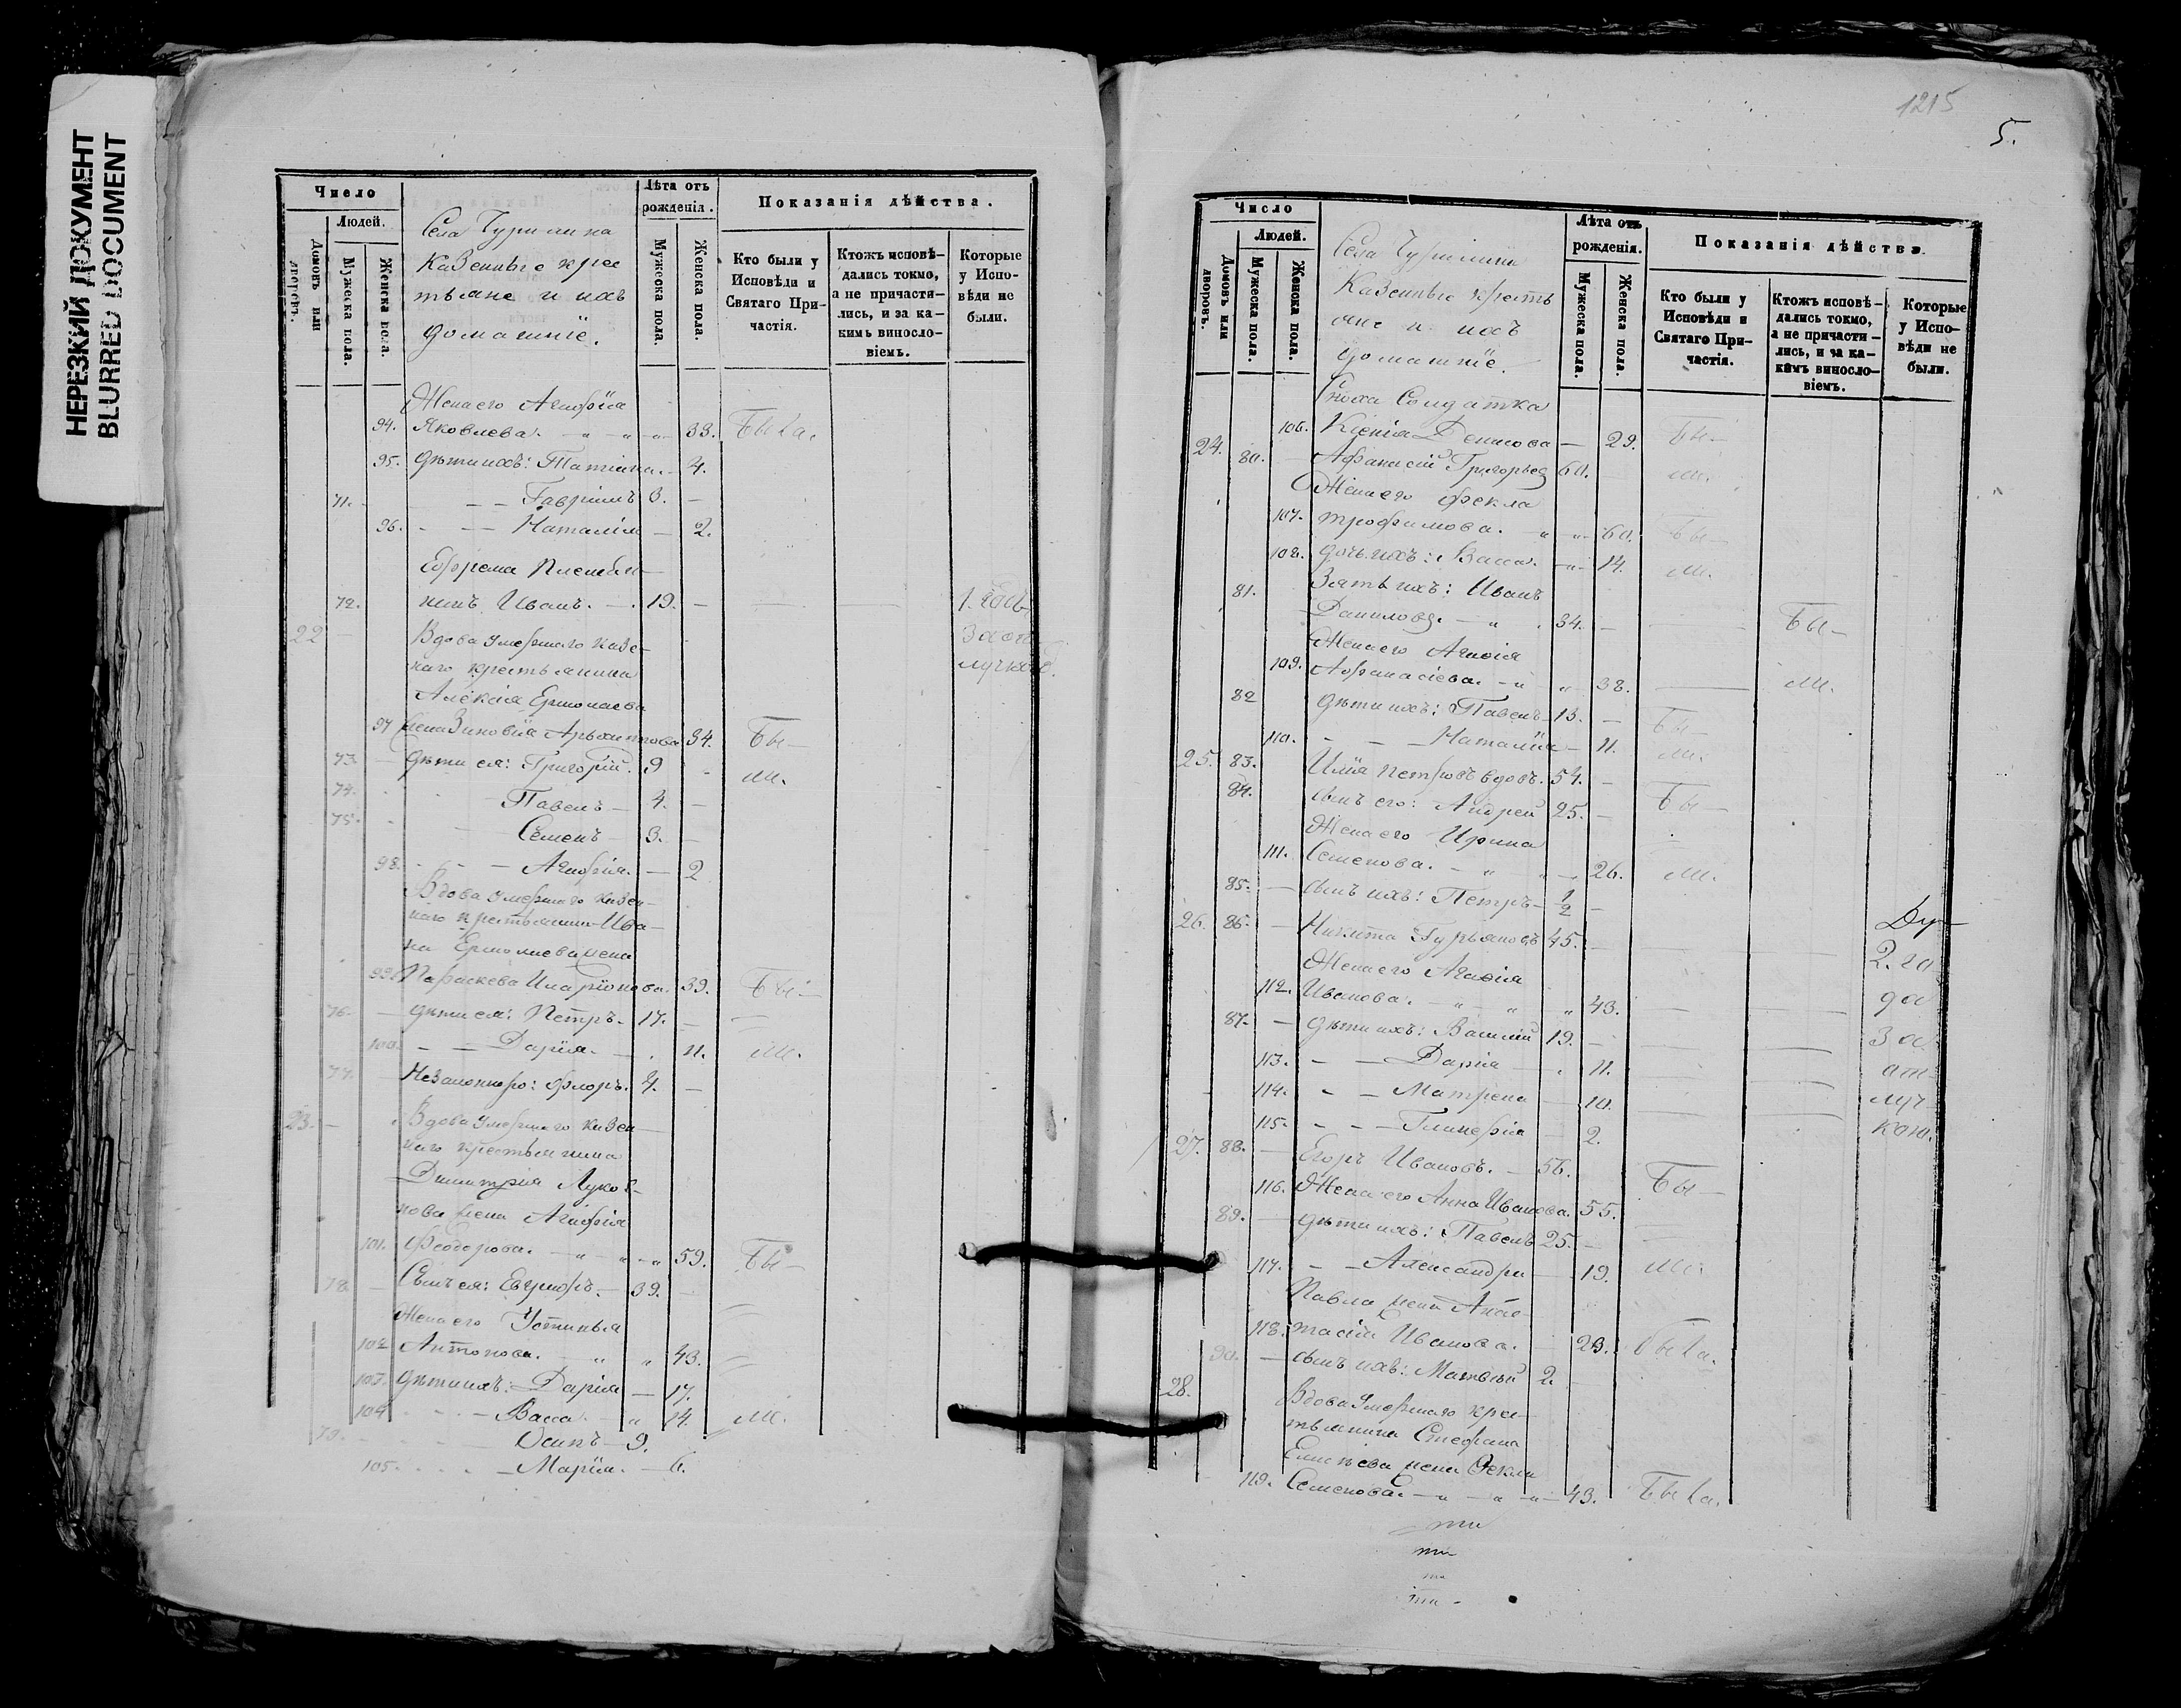 НЕРЕЗКИЙ ДОКУМЕНТ
BLURRED DOCUMENT
Число
Людей.
Домовъ или дворовъ.
Мужеска пола.
Женска пола.
Села
Казенные крес
тьяне и ихъ
домашніе.
Лѣта отъ рожденія.
Мужеска пола.
Женска пола.
Показанія дѣйства.
Кто были у Исповѣди и Святаго Причастія.
Ктожъ исповѣдались токмо, а не причастились, и за какимъ винословіемъ.
Которые у Исповѣди не были.
Жена его Агафія
94. Яковлева. 33. Была.
95. Дѣти ихъ: Татіана. 4.
71. Гавріилъ 3.
96. Наталія 2.
Ефрема
72. Иванъ. 19. 1.
22 Вдова умершаго казе-
наго крестьянина
Алексія Ермолаева
97 жена Зиновія Архиппова 34. Бы-
73. Дѣти ея: Григорій. 9 ли.
74. Павелъ 4.
75. Семенъ 3.
98. Агафія. 2
Вдова умершаго казен-
наго крестьянина Ива-
на Ермолаева жена
99. Параскева Иларіонова. 39. Бы-
76. Дѣти ея: Петръ. 17.
100. Дарія. 11. ли.
77. Незаконнор: Флоръ. 4.
23. Вдова умершаго казен-
наго крестьянина
Димитрія Лукоя-
нова жена Агафія
101. Феодорова. 59. Бы-
78. Сынъ ея: 39.
Жена его Устинья
102 Антонова. 43.
103. Дѣти ихъ: Дарія 17.
104 Васса. 14. ли.
79. Осипъ 9.
105. Марія. 6.
1215
5.
Число
Людей.
Домовъ или дворовъ.
Мужеска пола.
Женска пола.
Села
Казенные кресть
яне и ихъ
домашніе.
Лѣта отъ рожденія.
Мужеска пола.
Женска пола.
Показанія дѣйства.
Кто были у Исповѣди и Святаго Причастія.
Ктожъ исповѣдались токмо, а не причастились, и за какимъ винословіемъ.
Которые у Исповѣди не были.
Сноха Солдатка
106. Ксенія Денисова 29. Бы-
24. 80. Афанасій Григорьев 60. ли.
Жена его Фекла
107. Трофимова. 60. Бы-
108. Дочь ихъ: Васса. 14. ли.
81. Зять ихъ: Иванъ
Данилов. 34. Бы-
Жена его Агафія
109. Афанасіева. 38. ли.
82 Дѣти ихъ: Павелъ 13. Бы-
110. Наталія 11. ли.
25. 83. Илія Петровъ вдовъ. 54.
84. Сынъ его: Андрей 25. Бы-
Жена его Ирина
111. Семенова. 26. ли.
85. Сынъ ихъ: Петръ 1/2
26. 86. Никита Гурьяновъ 45.
Жена его Агафія 2. го
112. Иванова. 43. да
87. Дѣти ихъ: Василій 19. За
113. Дарія 11. от
114. Матрена 10. луч
115. Гликерія 2. кою.
27. 88. Егоръ Ивановъ. 56. Бы-
116. Жена его Анна Иванова. 55.
89. Дѣти ихъ: Павелъ 25.
117. Александра 19. ли.
Павла жена Анас-
118. тасія Иванова. 29. Была.
90. Сынъ ихъ: Матвѣй 2.
28. Вдова умершаго крес-
тьянина Стефана
Елисѣева жена Фекла
119. Семенова. 43. Была.